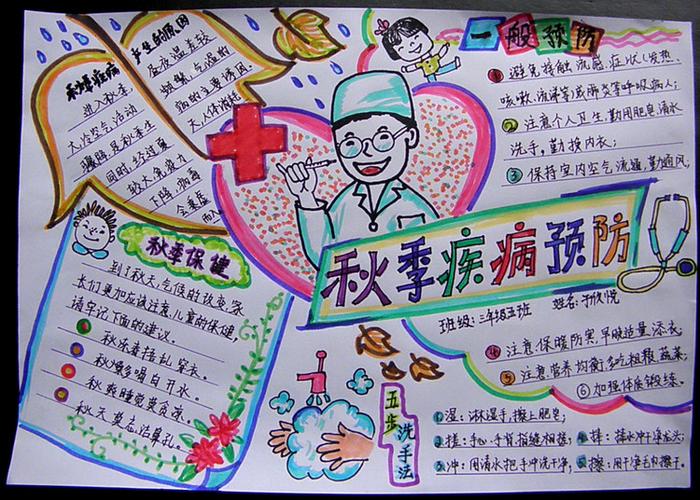 秋季疾病预防
班级:三年级五班 姓名:于欣悦
秋季疾病
进入秋季,
入冷空气活动
骤降,是秋季生
同时,经过夏
较大,免疫力
下降,病毒
会乘虚
而入
产生的原因
昼夜温差较
频繁,气温的
病的主要诱因。
天人体消耗
一般预防
① 避免接触流感症状(发热、
咳嗽、流涕等)或肺炎等呼吸病人;
② 注意个人卫生,勤用肥皂、清水
洗手,勤换内衣;
③ 保持室内空气流通,勤通风;
④ 注意保暖防寒,早晚适量添衣;
⑤ 注意营养均衡多吃粗粮蔬菜;
⑥ 加强体质锻炼。
秋季保健
到了秋天,气候的改变,家
长们更加应该注意儿童的保健,
请牢记下面的建议。
秋冻要捂乱穿衣。
秋燥多喝白开水。
秋爽睡觉莫贪凉。
秋天莫忘洁鼻孔。
五步洗手法
1湿:淋湿手,擦上肥皂;
2搓:手心、手背、指缝相搓;
3冲:用清水把手冲洗干净;
4捧:捧水冲干净龙头;
5擦:用干净毛巾擦干。